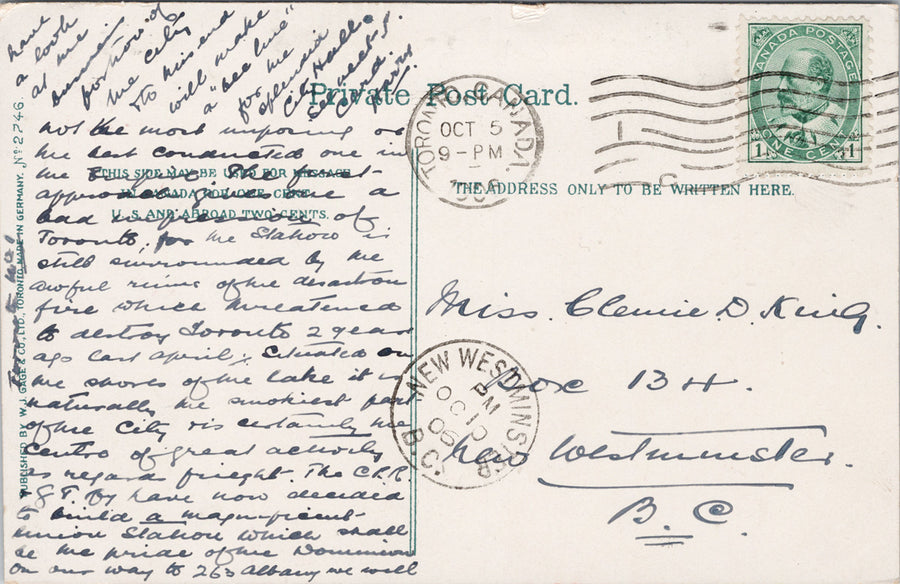 Private Post Card.
THIS SIDE MAY BE USED FOR MESSAGE
IN CANADA FOR ONE CENT
U.S. AND ABROAD TWO CENTS.
THE ADDRESS ONLY TO BE WRITTEN HERE.
PUBLISHED BY W. J. GAGE & CO., LTD., TORONTO. MADE IN GERMANY. No 2746
CANADA POSTAGE
1 ONE CENT 1
TORONTO, CANADA
OCT 5
9-PM
1906
NEW WESTMINSTER
PM
OC 10
06
B.C.
Miss. Clemie D. King.
Box 134.
New Westminster.
B.C.
Toronto No.
not the most imposing or
the best conducted one in
the
approach gives one a
bad impression of
Toronto, for the Station is
still surrounded by the
awful ruins of the disastrous
fire which threatened
to destroy Toronto 2 years
ago last April. Situated on
the shores of the lake it is
naturally the smokiest part
of the City & is certainly the
centre of great activity
as regards frieght. The C.P.R.
& G.T. Ry have now decided
to build a magnificent
Union Station which shall
be the pride of the Dominion
on our way to 263 Albany we will
have
a look
at the
business
portion of
the City
& to this end
will make
a "bee line"
for the
splendid
City Hall.
See next
Card.